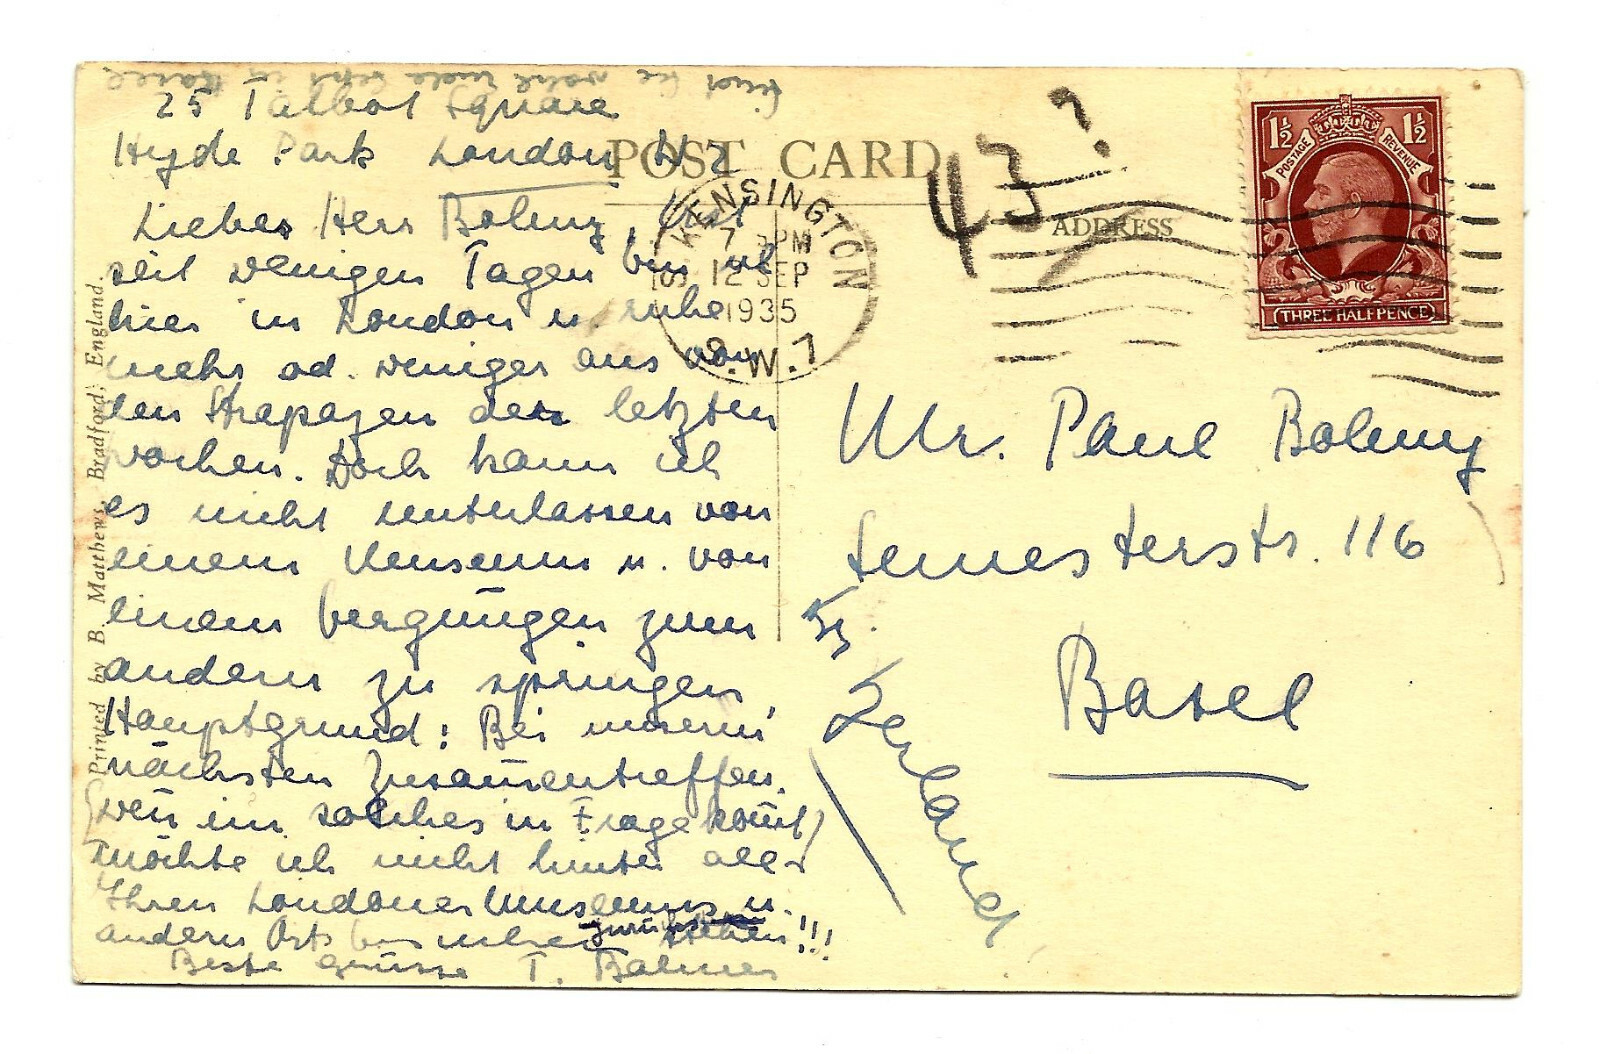 25 Talbot Square
Hyde Park London W 2
POST CARD
43 ?
Lieber Herr Bolmy, Erst
seit wenigen Tagen bin ich
hier in London u. ruhe
mehr od. weniger aus von
den Strapazen der letzten
Wochen. Doch kann ich
es nicht unterlassen von
einem Museum u. von
einem Vergnügen zum
andern zu springen.
Hauptgrund: Bei unserm
nächsten Zusam̅entreffen
(wen̅ ein solches in Frage kom̅t)
möchte ich nicht hinter all
Ihren Londoner Museums u.
andern
zurück stehen!!!
Beste Grüsse T.
S. KENSINGTON
7
PM
12 SEP
1935
S.W.7
ADDRESS
1½ 1½
POSTAGE REVENUE
THREE HALFPENCE
Mr. Paul Bolmy
Semesterstr. 116
Basel
Printed by B. Matthews, Bradford, England.